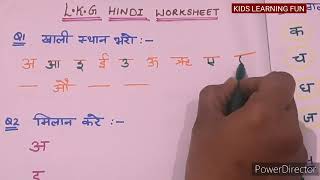 L.K.G HINDI WORKSHEET
KIDS LEARNING FUN
Q1 खाली स्थान भरो :-
अ आ इ ई उ ऊ ऋ ए
— औ — —
Q2 मिलान करे :-
अ
इ
क
च
ध
ज
PowerDirector